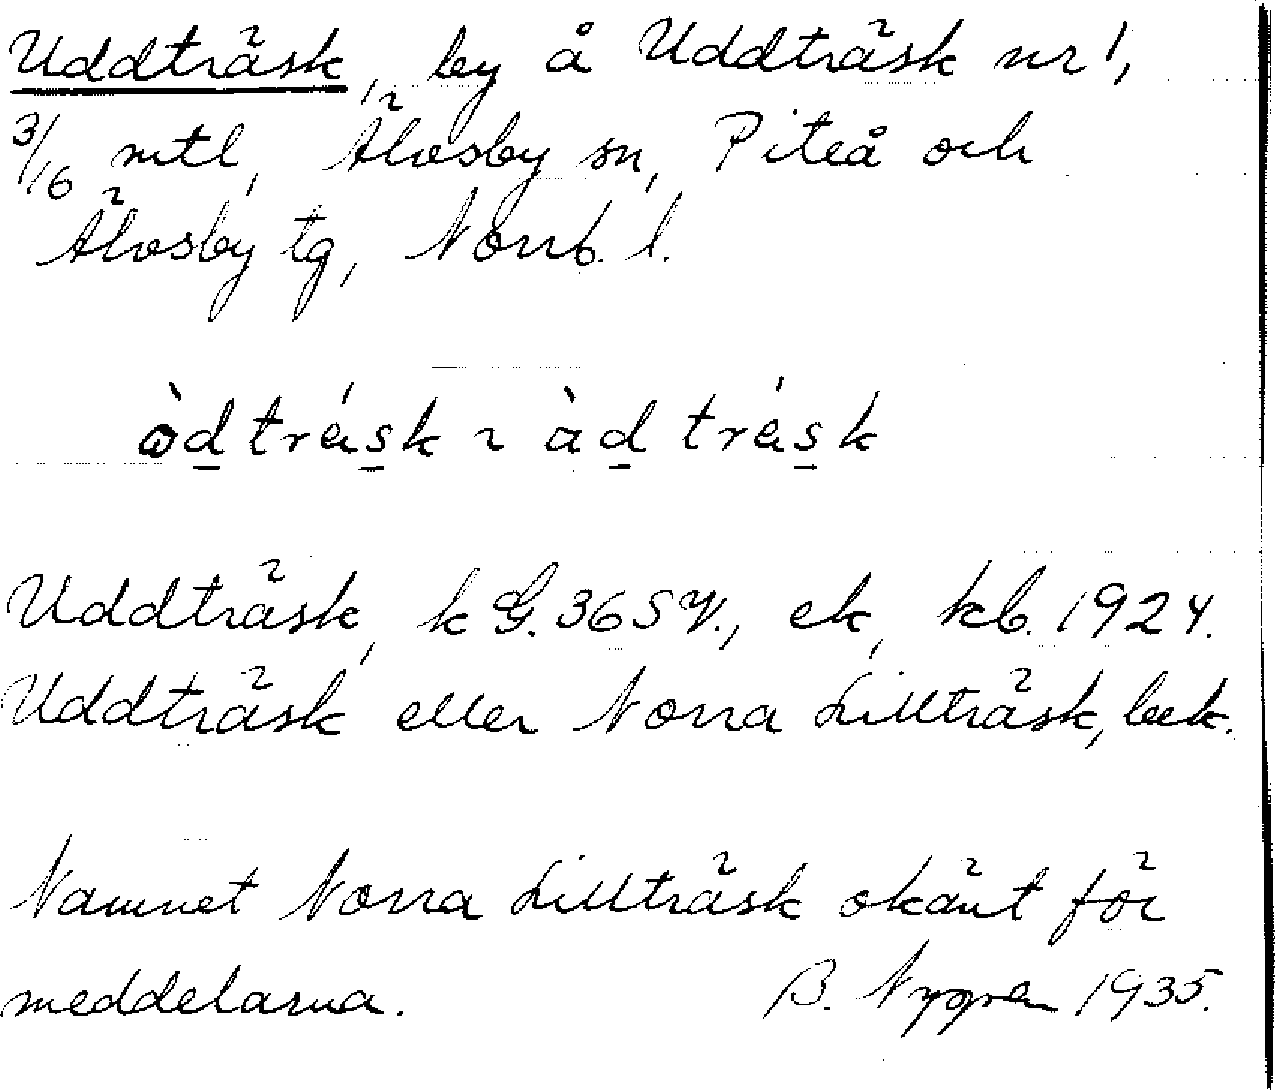 Uddträsk, by å Uddträsk nr 1,
3/16 mtl, Älvsby sn, Piteå och
Älvsby tg, Norrb. l.
Uddträsk, k G. 365 V., ek, kb. 1924.
Uddträsk eller Norra Lillträsk, bek.
Namnet Norra Lillträsk okänt för
meddelarna. B. Nygren 1935.